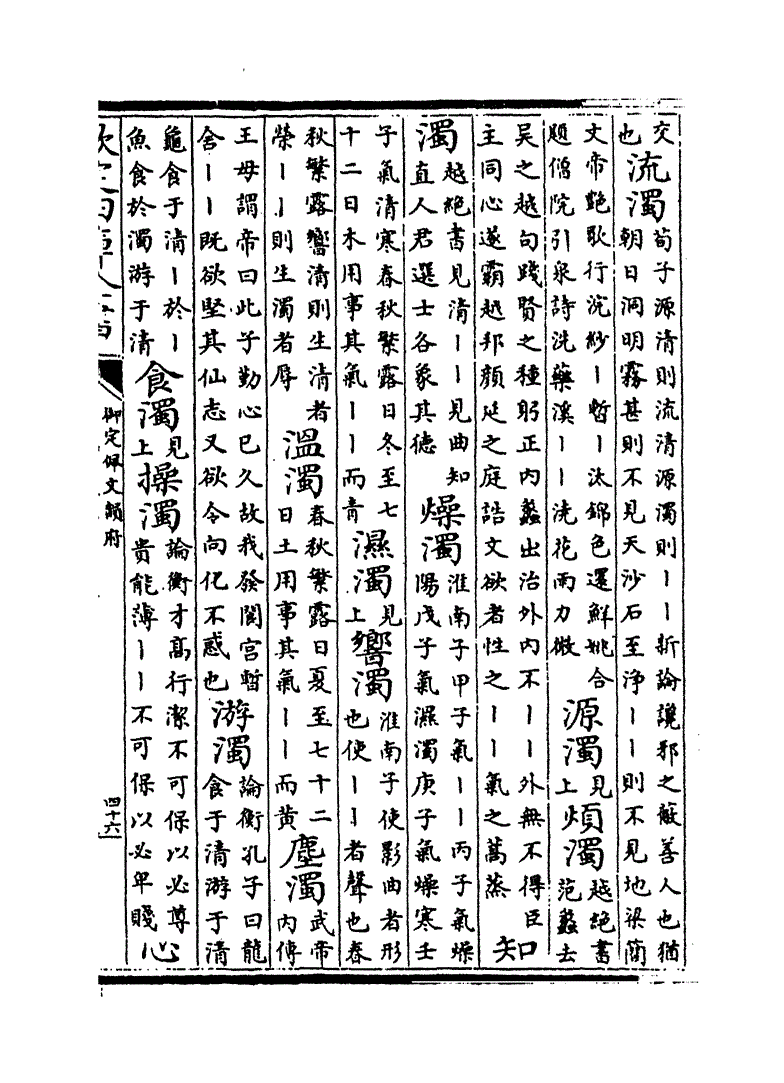 交也流濁荀子源清則流清源濁則丨丨新論讒邪之蔽善人也猶朝日洞明霧甚則不見天沙石至淨丨丨則不見地梁簡
文帝艷歌行浣紗丨暫丨汰錦色還鮮姚合題僧院引泉詩洗藥溪丨丨澆花雨力微源濁見上煩濁越絶書范蠡去
吴之越句踐賢之種躬正内蠡出治外内不丨丨外無不得臣主同心遂霸越邦顔延之庭誥文欲者性之丨丨氣之蒿蒸知
濁越絶書見清丨丨見曲知直人君選士各象其德燥濁淮南子甲子氣丨丨丙子氣燥陽戊子氣濕濁庚子氣燥寒壬
子氣清寒春秋繁露日冬至七十二日木用事其氣丨丨而青濕濁見上響濁淮南子使影曲者形也使丨丨者聲也春
秋繁露響清則生清者榮丨丨則生濁者辱溫濁春秋繁露日夏至七十二日土用事其氣丨丨而黄塵濁武帝内傳
王母謂帝曰此子勤心已久故我發閬宫暫舍丨丨既欲堅其仙志又欲令向化不惑也游濁論衡孔子曰龍食于清游于清
龜食于清丨於丨魚食於濁游于清食濁見上操濁論衡才高行潔不可保以必尊貴能薄丨丨不可保以必卑賤心
欽定四庫全書
御定佩文韻府
四十六